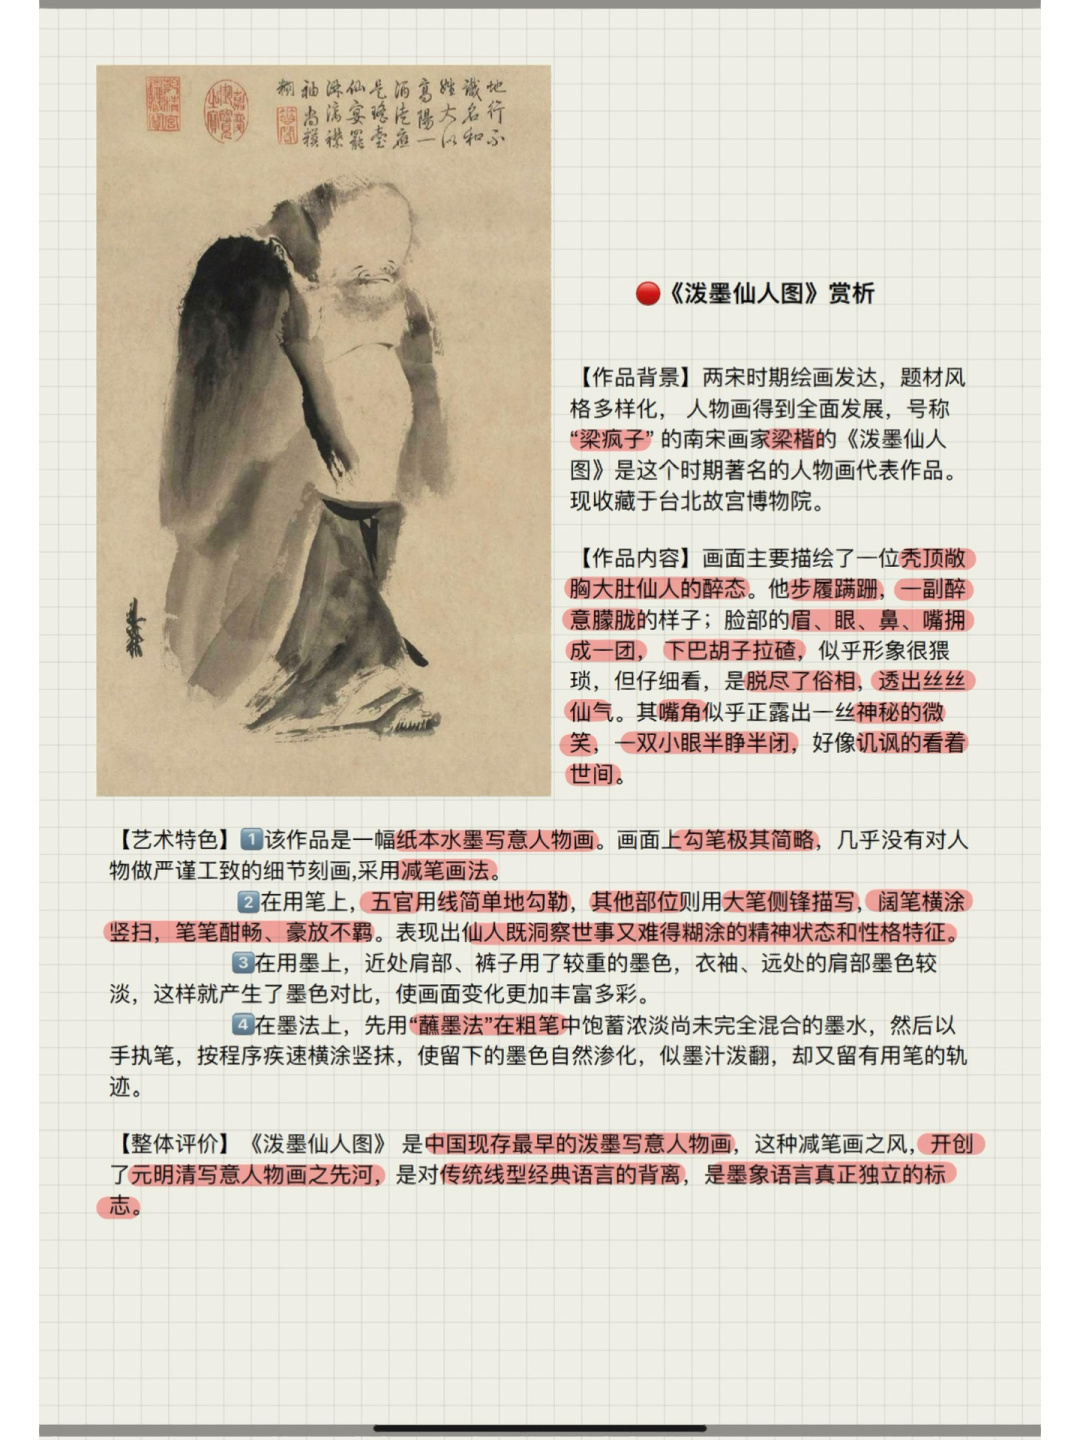 地行不
识名和
姓大似
高陽一
酒徒應
是瑤臺
仙宴罷
淋漓襟
袖尚模
糊
🔴《泼墨仙人图》赏析
【作品背景】两宋时期绘画发达，题材风
格多样化， 人物画得到全面发展，号称
“梁疯子” 的南宋画家梁楷的《泼墨仙人
图》是这个时期著名的人物画代表作品。
现收藏于台北故宫博物院。
【作品内容】画面主要描绘了一位秃顶敞
胸大肚仙人的醉态。他步履蹒跚，一副醉
意朦胧的样子；脸部的眉、眼、鼻、嘴拥
成一团， 下巴胡子拉碴，似乎形象很猥
琐，但仔细看，是脱尽了俗相，透出丝丝
仙气。其嘴角似乎正露出一丝神秘的微
笑，一双小眼半睁半闭，好像讥讽的看着
世间。
【艺术特色】1️⃣该作品是一幅纸本水墨写意人物画。画面上勾笔极其简略，几乎没有对人
物做严谨工致的细节刻画,采用减笔画法。
2️⃣在用笔上，五官用线简单地勾勒，其他部位则用大笔侧锋描写，阔笔横涂
竖扫，笔笔酣畅、豪放不羁。表现出仙人既洞察世事又难得糊涂的精神状态和性格特征。
3️⃣在用墨上，近处肩部、裤子用了较重的墨色，衣袖、远处的肩部墨色较
淡，这样就产生了墨色对比，使画面变化更加丰富多彩。
4️⃣在墨法上，先用“蘸墨法”在粗笔中饱蓄浓淡尚未完全混合的墨水，然后以
手执笔，按程序疾速横涂竖抹，使留下的墨色自然渗化，似墨汁泼翻，却又留有用笔的轨
迹。
【整体评价】《泼墨仙人图》 是中国现存最早的泼墨写意人物画，这种减笔画之风，开创
了元明清写意人物画之先河，是对传统线型经典语言的背离，是墨象语言真正独立的标
志。